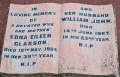 IN LOVING MEMORY
OF
A DEVOTED WIFE
AND MOTHER
EDNA EILEEN
GLASSON
DIED 10TH NOV. 1966
IN HER 39TH YEAR
R.I.P.
AND HER HUSBAND
WILLIAM JOHN
DIED
14TH JUNE 1987
IN HIS 63RD YEAR
R.I.P.